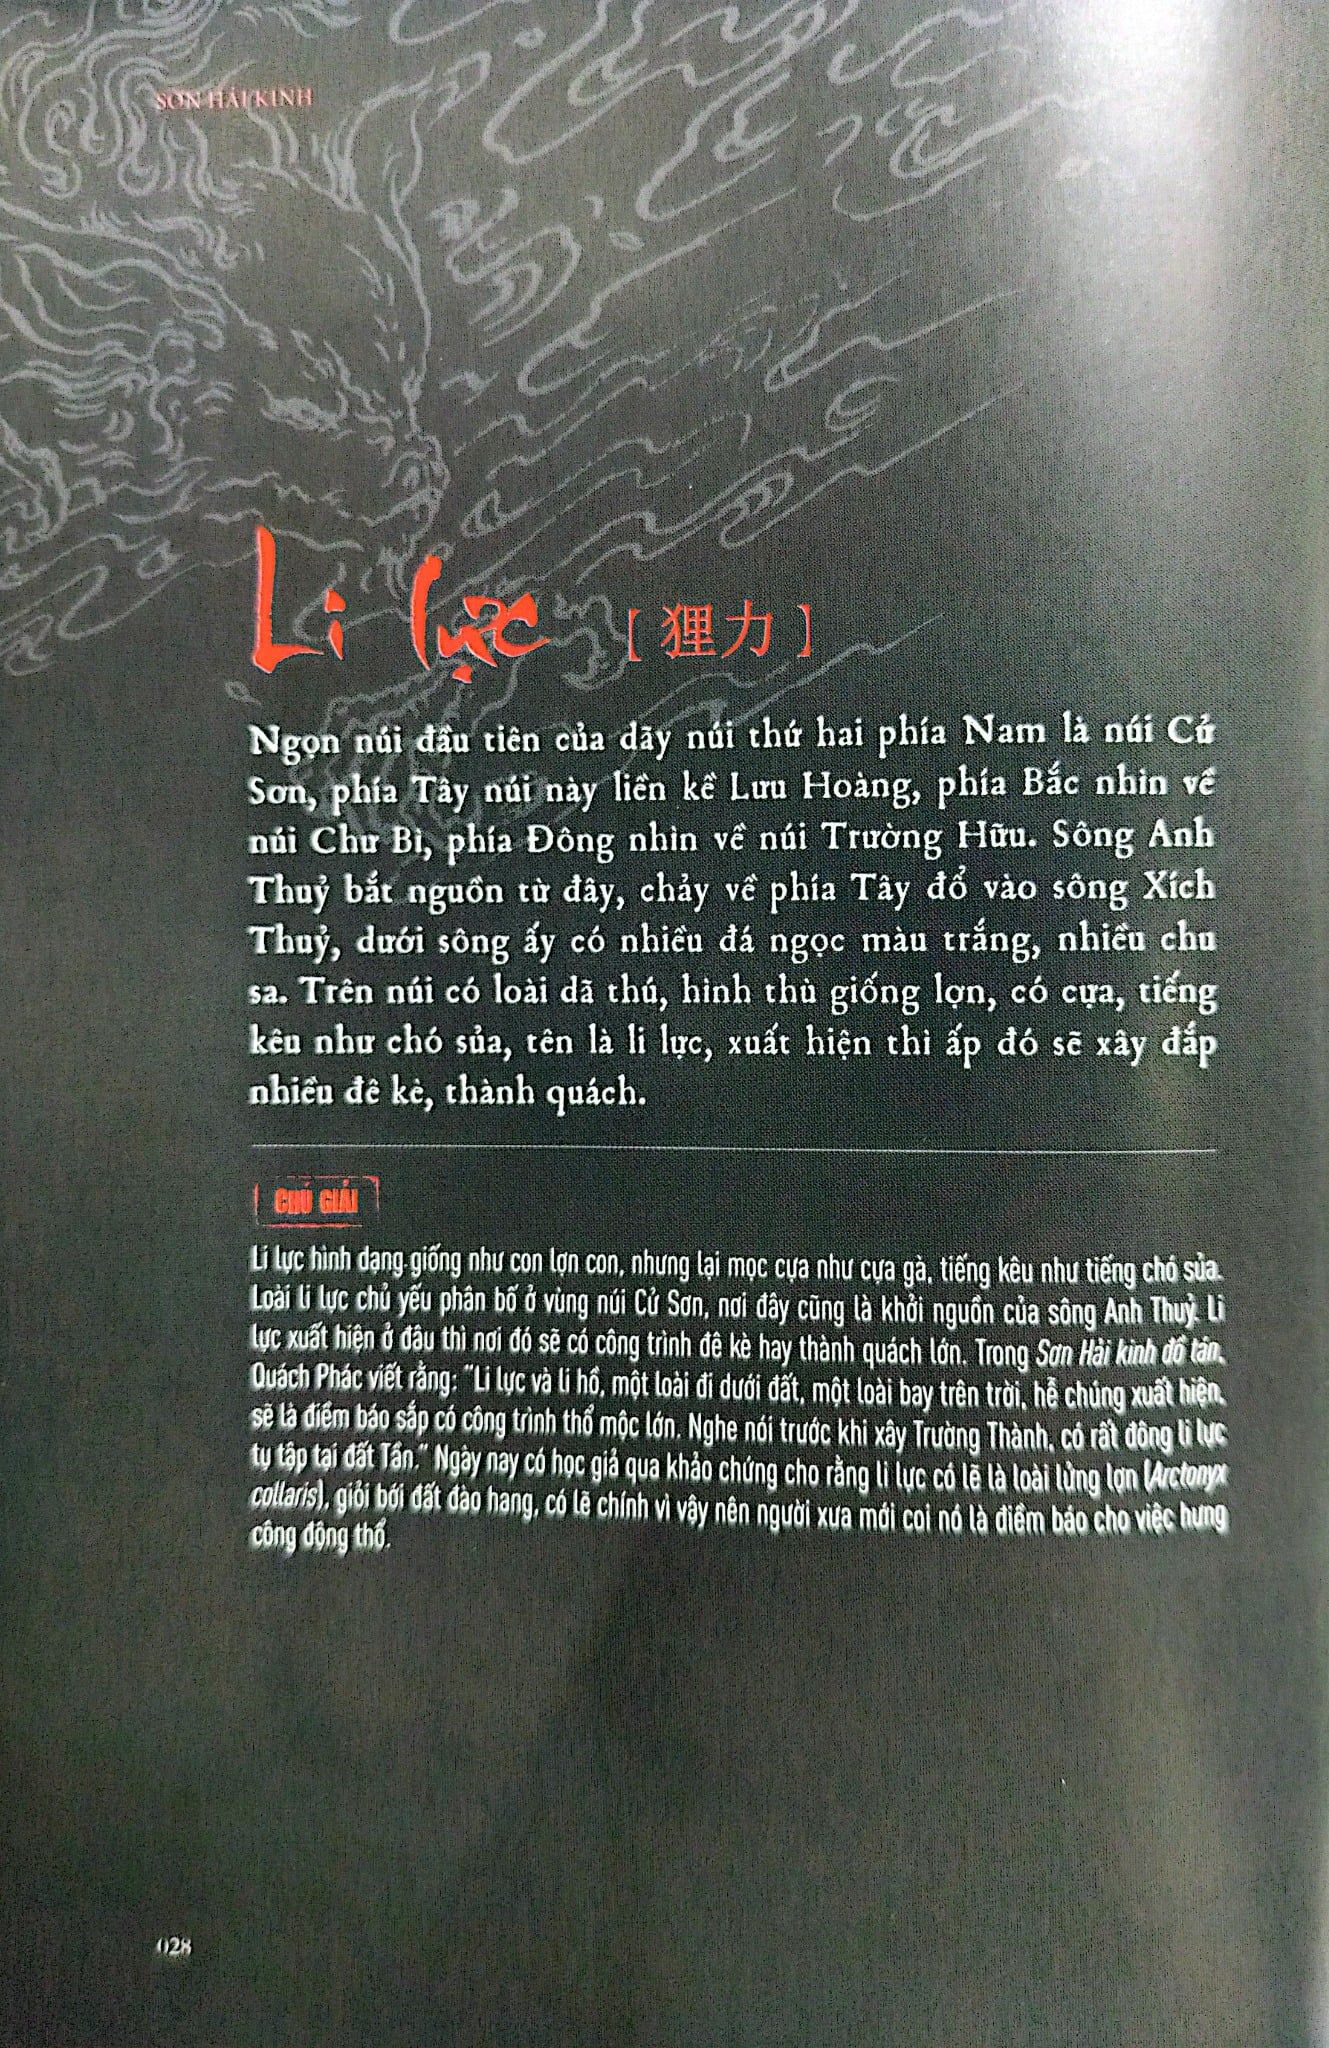 SƠN HẢI KINH
Li lực [狸力]
Ngọn núi đầu tiên của dãy núi thứ hai phía Nam là núi Cử
Sơn, phía Tây núi này liền kề Lưu Hoàng, phía Bắc nhìn về
núi Chư Bì, phía Đông nhìn về núi Trường Hữu. Sông Anh
Thuỷ bắt nguồn từ đây, chảy về phía Tây đổ vào sông Xích
Thuỷ, dưới sông ấy có nhiều đá ngọc màu trắng, nhiều chu
sa. Trên núi có loài dã thú, hình thù giống lợn, có cựa, tiếng
kêu như chó sủa, tên là li lực, xuất hiện thì ấp đó sẽ xây đắp
nhiều đê kè, thành quách.
CHÚ GIẢI
Li lực hình dạng giống như con lợn con, nhưng lại mọc cựa như cựa gà, tiếng kêu như tiếng chó sủa.
Loài li lực chủ yếu phân bố ở vùng núi Cử Sơn, nơi đây cũng là khởi nguồn của sông Anh Thuỷ. Li
lực xuất hiện ở đâu thì nơi đó sẽ có công trình đê kè hay thành quách lớn. Trong Sơn Hải kinh đồ tán,
Quách Phác viết rằng: "Li lực và li hồ, một loài đi dưới đất, một loài bay trên trời, hễ chúng xuất hiện,
sẽ là điềm báo sắp có công trình thổ mộc lớn. Nghe nói trước khi xây Trường Thành, có rất đông li lực
tụ tập tại đất Tần." Ngày nay có học giả qua khảo chứng cho rằng li lực có lẽ là loài lửng lợn (Arctonyx
collaris), giỏi bới đất đào hang, có lẽ chính vì vậy nên người xưa mới coi nó là điềm báo cho việc hưng
công động thổ.
028